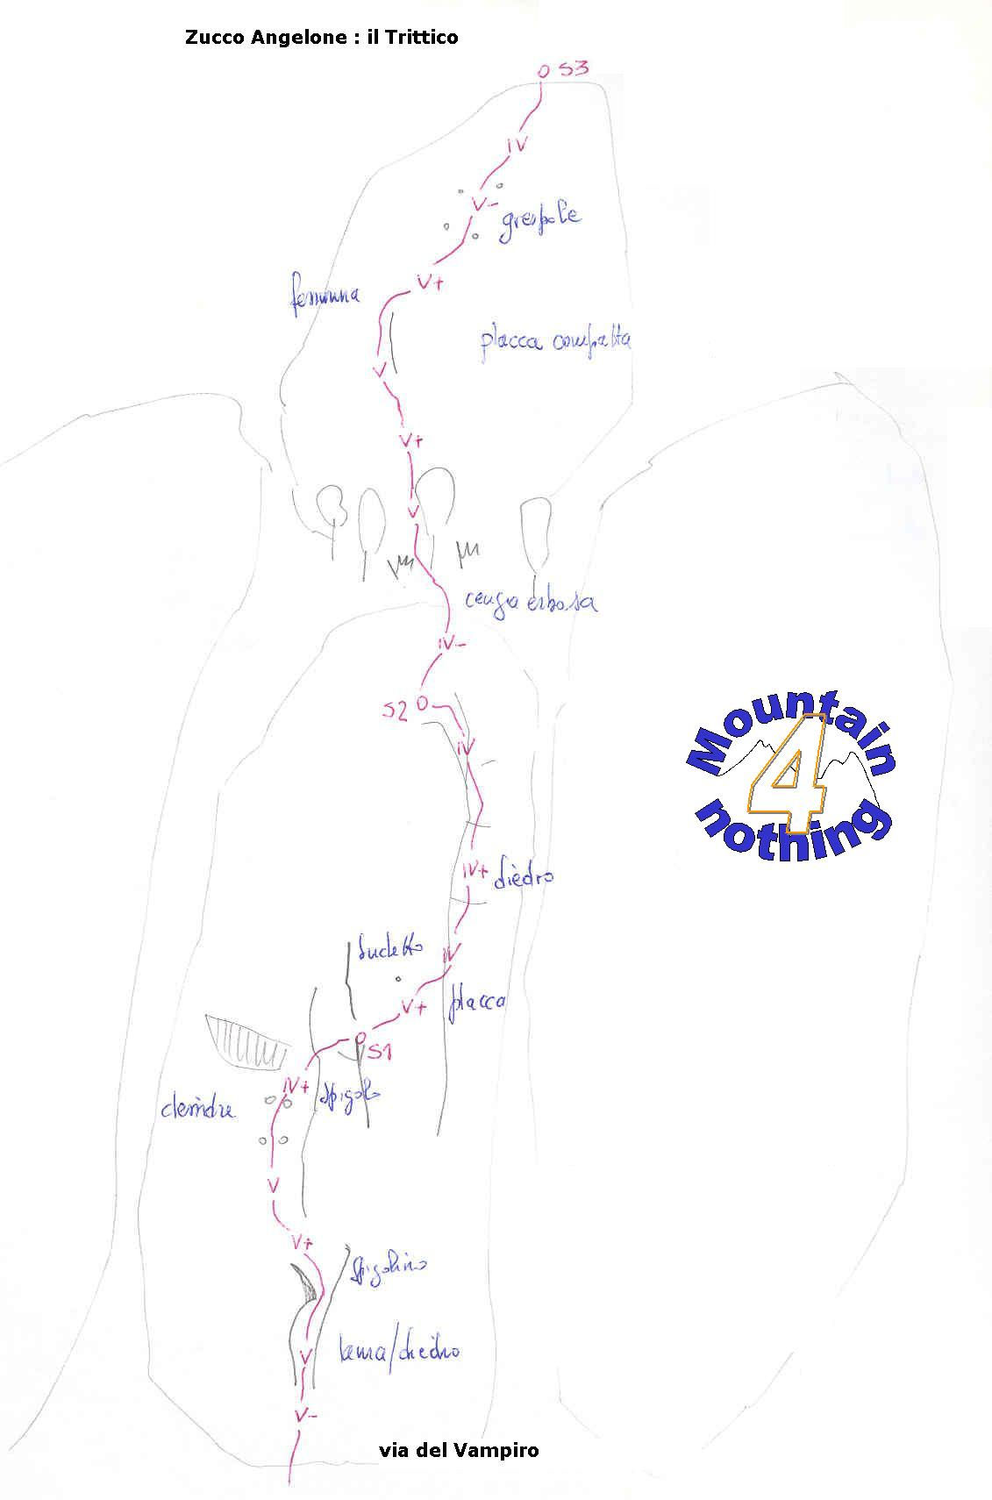 Zucco Angelone : il Trittico
S3
IV
V-
V+
placca compatta
V
V+
V
cengia erbosa
IV-
S2
IV
Mountain
4
nothing
IV+
diedro
IV
V+
placca
S1
IV+
spigolo
V
V+
spigolino
lama/diedro
V
V-
via del Vampiro